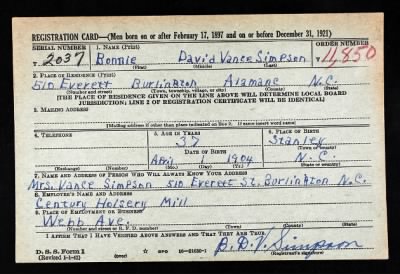 REGISTRATION CARD—(Men born on or after February 17, 1897 and on or before December 31, 1921)
SERIAL NUMBER 1. NAME (Print) ORDER NUMBER
T 2037 Bonnie David Vance Simpson 11,850
(First) (Middle) (Last)
2. PLACE OF RESIDENCE (Print)
510 Everett Burlington Alamance N.C.
(Number and street) (Town, township, village, or city) (County) (State)
[THE PLACE OF RESIDENCE GIVEN ON THE LINE ABOVE WILL DETERMINE LOCAL BOARD
JURISDICTION; LINE 2 OF REGISTRATION CERTIFICATE WILL BE IDENTICAL]
3. MAILING ADDRESS
[Mailing address if other than place indicated on line 2. If same insert word same]
4. TELEPHONE 5. AGE IN YEARS 6. PLACE OF BIRTH
37 Stanley
DATE OF BIRTH (Town or county)
April 1 1904 N.C.
(Exchange) (Number) (Mo.) (Day) (Yr.) (State or country)
7. NAME AND ADDRESS OF PERSON WHO WILL ALWAYS KNOW YOUR ADDRESS
Mrs. Vance Simpson 510 Everett St. Burlington N.C.
8. EMPLOYER'S NAME AND ADDRESS
Century Hosery Mill
9. PLACE OF EMPLOYMENT OR BUSINESS
Webb Ave.
(Number and street or R. F. D. number) (Town) (County) (State)
I AFFIRM THAT I HAVE VERIFIED ABOVE ANSWERS AND THAT THEY ARE TRUE.
D. S. S. Form 1
(Revised 1-1-42) GPO 16-21630-1 B.D.V. Simpson
(Registrant's signature)